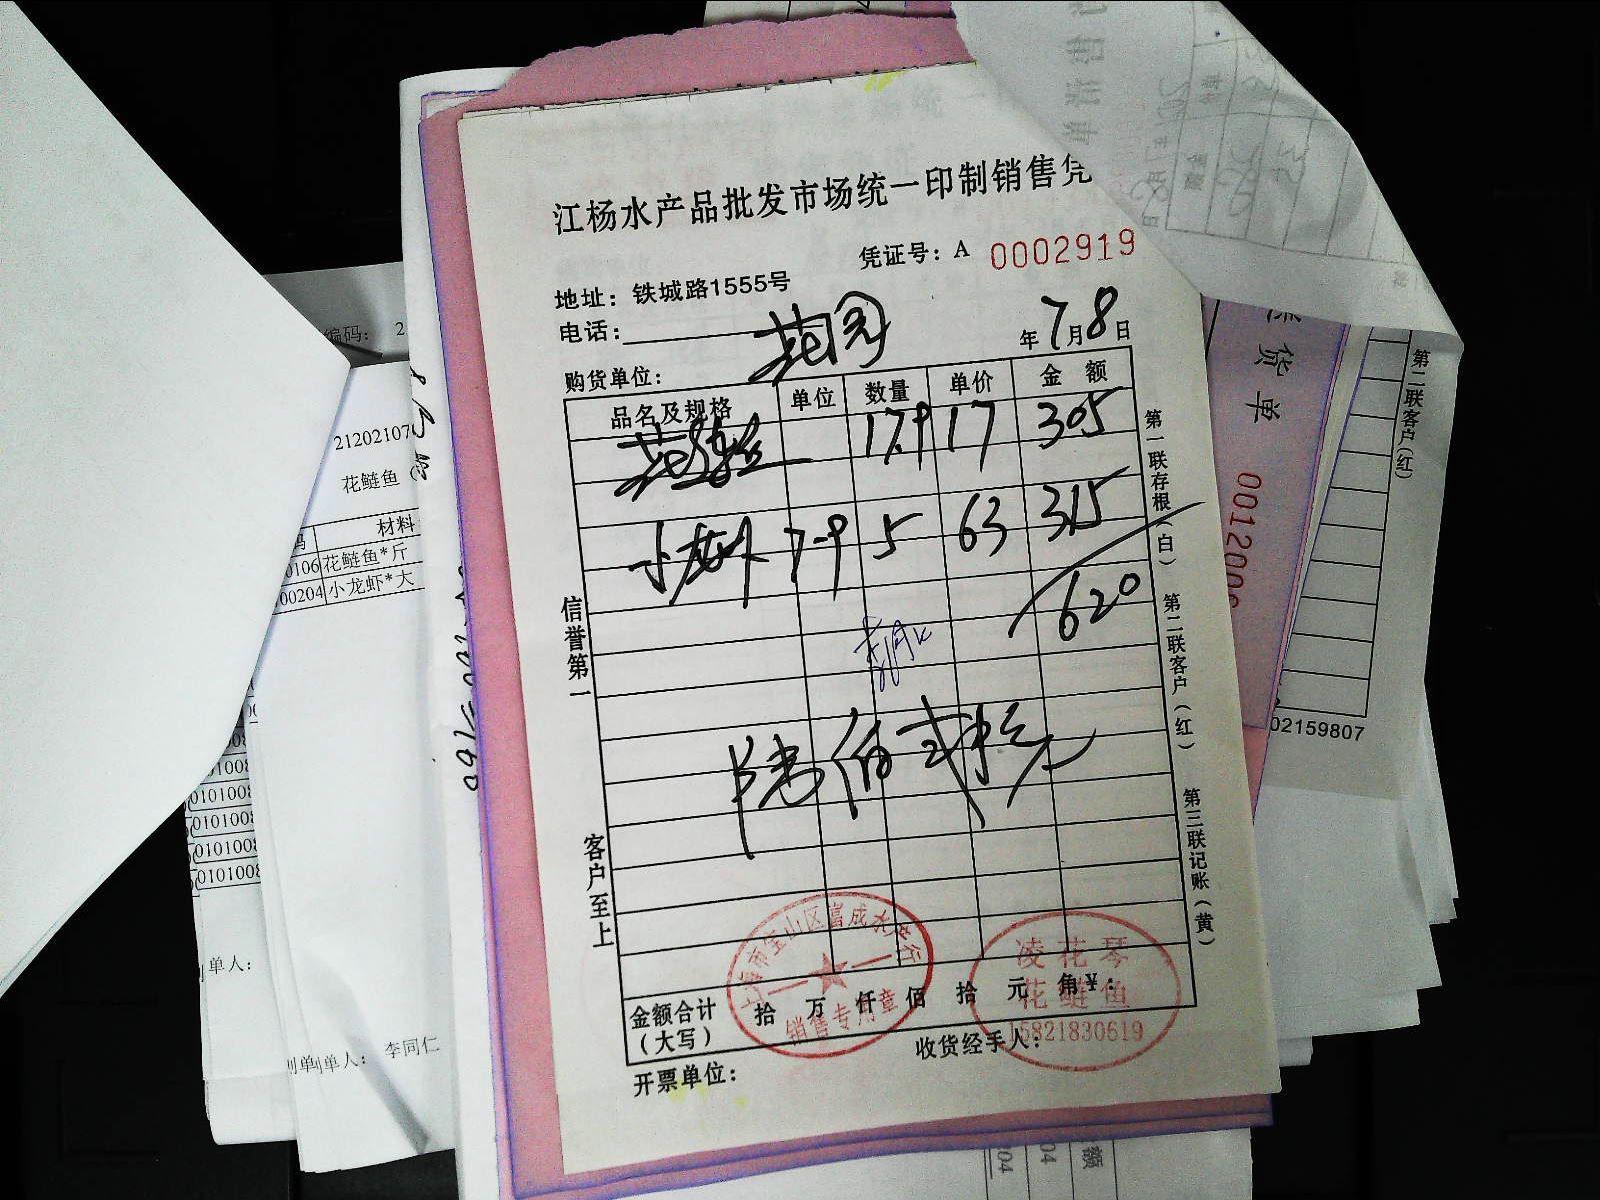 江杨水产品批发市场统一印制销售凭
凭证号：A 0002919
地址：铁城路1555号
电话：
花园
年7月8日
购货单位：
品名及规格 单位 数量 单价 金额
花鲢鱼 17.9 17 305
小龙虾 7-9 5 63 315
620
陆佰贰拾元
金额合计（大写） 拾 万 仟 佰 拾 元 角 ¥：
开票单位：
收货经手人：
信誉第一
客户至上
第一联存根（白）
第二联客户（红）
第三联记账（黄）
上海市宝山区富成水产行
销售专用章
凌花琴
花鲢鱼
15821830619
编码： 2
花鲢鱼
材料
0106 花鲢鱼*斤
00204 小龙虾*大
010100
010100
010100
010100
010100
单人：
制单人： 李同仁
货单
0012006
第二联客户(红)
02159807